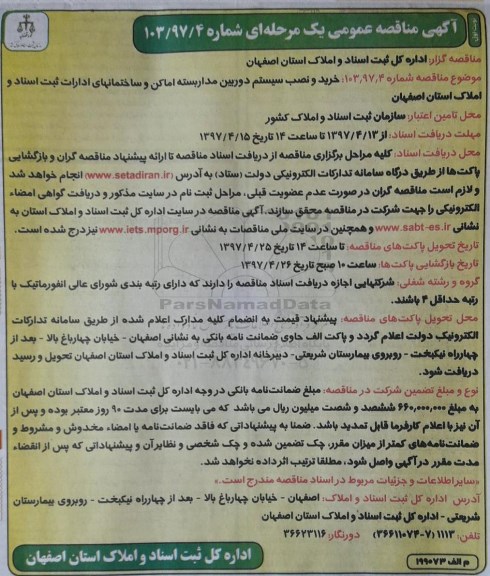 آگهی مناقصه عمومی یک مرحله‌ای شماره ۱۰۳/۹۷/۴
مناقصه گزار: اداره کل ثبت اسناد و املاک استان اصفهان
موضوع مناقصه شماره ۱۰۳/۹۷/۴: خرید و نصب سیستم دوربین مداربسته اماکن و ساختمانهای ادارات ثبت اسناد و
املاک استان اصفهان
محل تامین اعتبار: سازمان ثبت اسناد و املاک کشور
مهلت دریافت اسناد: از ۱۳۹۷/۴/۱۳ تا ساعت ۱۴ تاریخ ۱۳۹۷/۴/۱۵
محل دریافت اسناد: کلیه مراحل برگزاری مناقصه از دریافت اسناد مناقصه تا ارائه پیشنهاد مناقصه گران و بازگشایی
پاکت‌ها از طریق درگاه سامانه تدارکات الکترونیکی دولت (ستاد) به آدرس (www.setadiran.ir) انجام خواهد شد
و لازم است مناقصه گران در صورت عدم عضویت قبلی، مراحل ثبت نام در سایت مذکور و دریافت گواهی امضاء
الکترونیکی را جهت شرکت در مناقصه محقق سازند. آگهی مناقصه در سایت اداره کل ثبت اسناد و املاک استان به
نشانی www.sabt-es.ir و همچنین در سایت ملی مناقصات به نشانی www.iets.mporg.ir نیز درج شده است.
تاریخ تحویل پاکت‌های مناقصه: تا ساعت ۱۴ تاریخ ۱۳۹۷/۴/۲۵
تاریخ بازگشایی پاکت‌ها: ساعت ۱۰ صبح تاریخ ۱۳۹۷/۴/۲۶
گروه و رشته شغلی: شرکتهایی اجازه دریافت اسناد مناقصه را دارند که دارای رتبه بندی شورای عالی انفورماتیک با
رتبه حداقل ۴ باشند.
ParsNamadData
محل تحویل پاکت‌های مناقصه: پیشنهاد قیمت به انضمام کلیه مدارک اعلام شده از طریق سامانه تدارکات
الکترونیک دولت اعلام گردد و پاکت الف حاوی ضمانت نامه بانکی به نشانی اصفهان - خیابان چهارباغ بالا - بعد از
چهارراه نیکبخت - روبروی بیمارستان شریعتی- دبیرخانه اداره کل ثبت اسناد و املاک استان اصفهان تحویل و رسید
دریافت شود.
نوع و مبلغ تضمین شرکت در مناقصه: مبلغ ضمانت‌نامه بانکی در وجه اداره کل ثبت اسناد و املاک استان اصفهان
به مبلغ ۶۶۰,۰۰۰,۰۰۰ ششصد و شصت میلیون ریال می باشد که می بایست برای مدت ۹۰ روز معتبر بوده و پس از
آن نیز با اعلام کارفرما قابل تمدید باشد. ضمنا به پیشنهاداتی که فاقد ضمانت‌نامه یا امضاء مخدوش و مشروط و
ضمانت‌نامه‌های کمتر از میزان مقرر، چک تضمین شده و چک شخصی و نظایر آن و پیشنهاداتی که پس از انقضاء
مدت مقرر در آگهی واصل شود، مطلقا ترتیب اثر داده نخواهد شد.
«سایر اطلاعات و جزئیات مربوط در اسناد مناقصه مندرج است.»
آدرس اداره کل ثبت اسناد و املاک: اصفهان - خیابان چهارباغ بالا - بعد از چهارراه نیکبخت - روبروی بیمارستان
شریعتی - اداره کل ثبت اسناد و املاک استان اصفهان
تلفن: ۱۱۱۳ (۷-۳۶۶۱۱۰۷۴) دورنگار: ۳۶۶۲۳۱۱۶
م الف ۱۹۹۰۷۳
اداره کل ثبت اسناد و املاک استان اصفهان